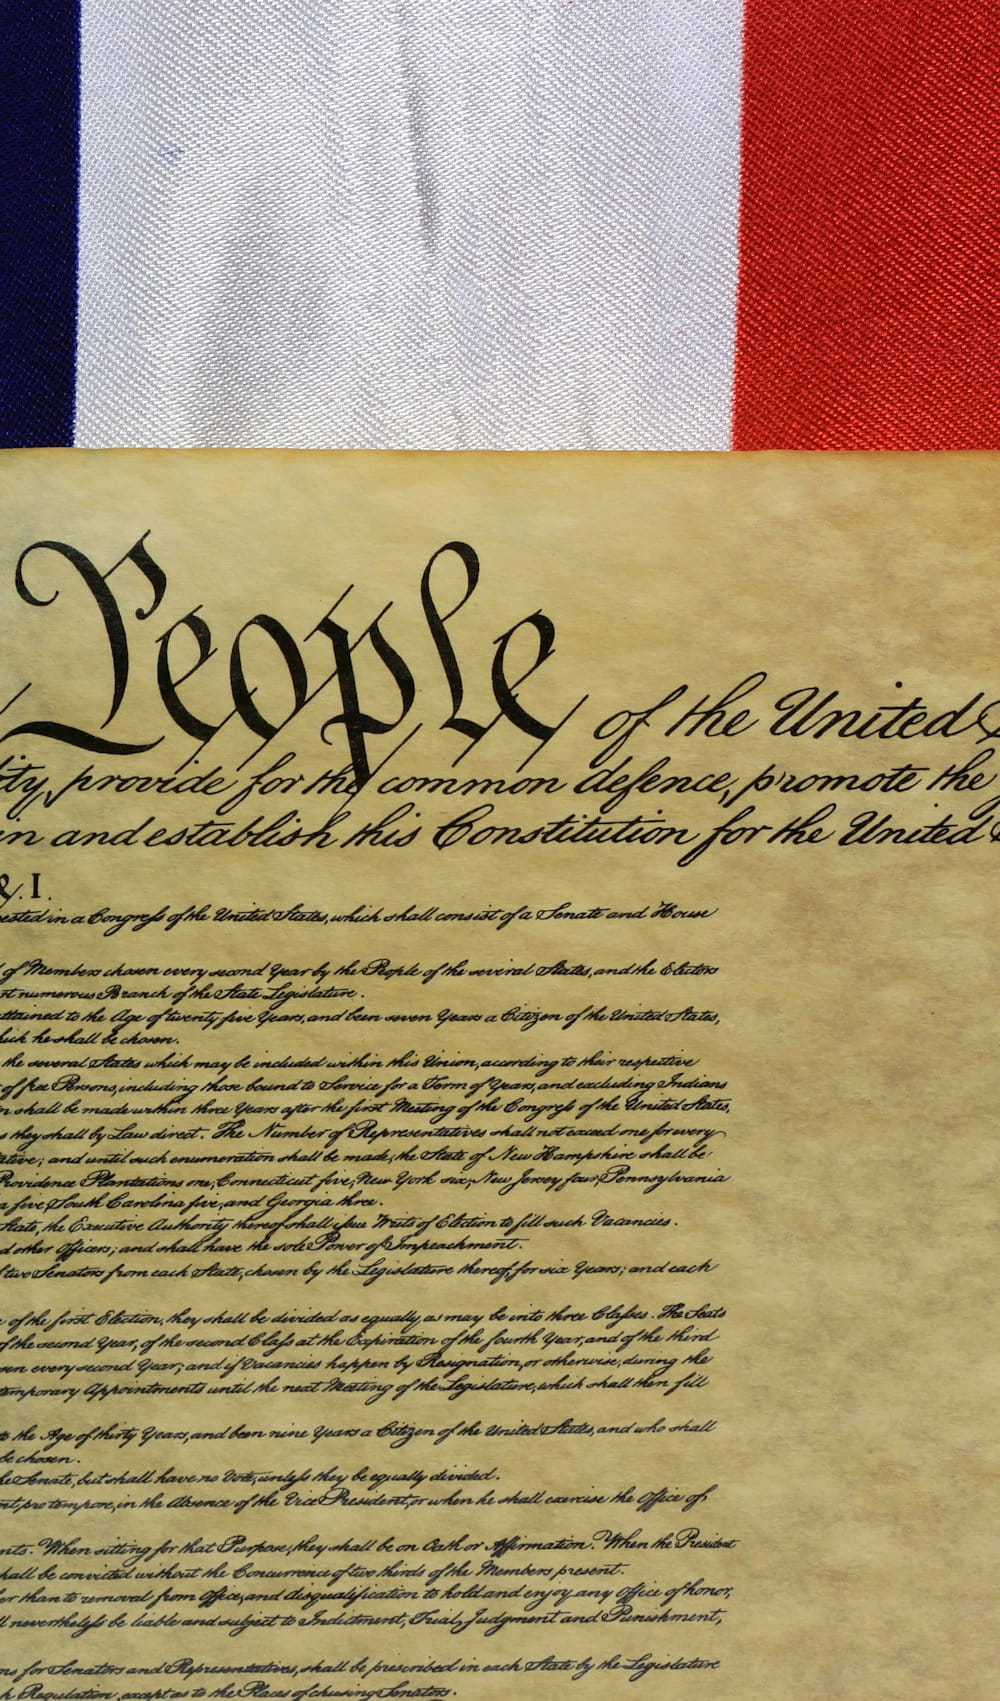 People of the United
ity, provide for the common defence, promote the
in and establish this Constitution for the United
&. I.
vested in a Congress of the United States, which shall consist of a Senate and House
of Members chosen every second Year by the People of the several States, and the Electors
st numerous Branch of the State Legislature.
ttained to the Age of twenty five Years, and been seven Years a Citizen of the United States,
hich he shall be chosen.
the several States which may be included within this Union, according to their respective
of free Persons, including those bound to Service for a Term of Years, and excluding Indians
n shall be made within three Years after the first Meeting of the Congress of the United States,
s they shall by Law direct. The Number of Representatives shall not exceed one for every
ative; and until such enumeration shall be made, the State of New Hampshire shall be
Providence Plantations one, Connecticut five, New York six, New Jersey four, Pennsylvania
a five, South Carolina five, and Georgia three.
State, the Executive Authority thereof shall issue Writs of Election to fill such Vacancies.
d other Officers; and shall have the sole Power of Impeachment.
f two Senators from each State, chosen by the Legislature thereof, for six Years; and each
e of the first Election, they shall be divided as equally as may be into three Classes. The Seats
of the second Year, of the second Class at the Expiration of the fourth Year, and of the third
sen every second Year; and if Vacancies happen by Resignation, or otherwise, during the
temporary Appointments until the next Meeting of the Legislature, which shall then fill
to the Age of thirty Years, and been nine Years a Citizen of the United States, and who shall
be chosen.
he Senate, but shall have no Vote, unless they be equally divided.
nt pro tempore, in the Absence of the Vice President, or when he shall exercise the Office of
nts. When sitting for that Purpose, they shall be on Oath or Affirmation. When the President
hall be convicted without the Concurrence of two thirds of the Members present.
er than to removal from Office, and disqualification to hold and enjoy any Office of honor,
ll nevertheless be liable and subject to Indictment, Trial, Judgment and Punishment,
ns for Senators and Representatives, shall be prescribed in each State by the Legislature
h Regulation, except as to the Places of chusing Senators.